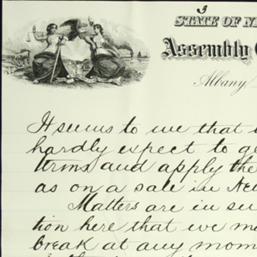 3
STATE OF N
Assembly C
Albany
It seems to me that
hardly expect to ge
terms and apply the
as on a sale in New
Matters are in su
tion here that we m
break at any mom